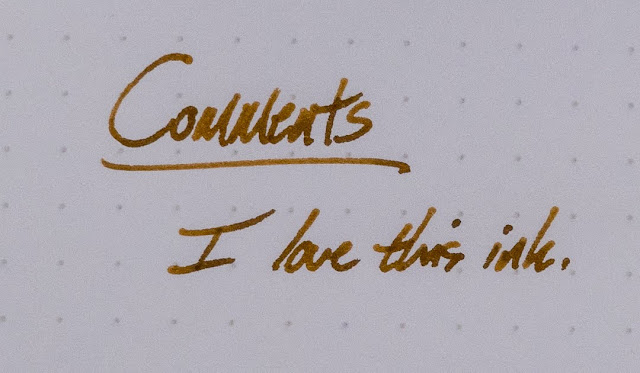 Comments
I love this ink.